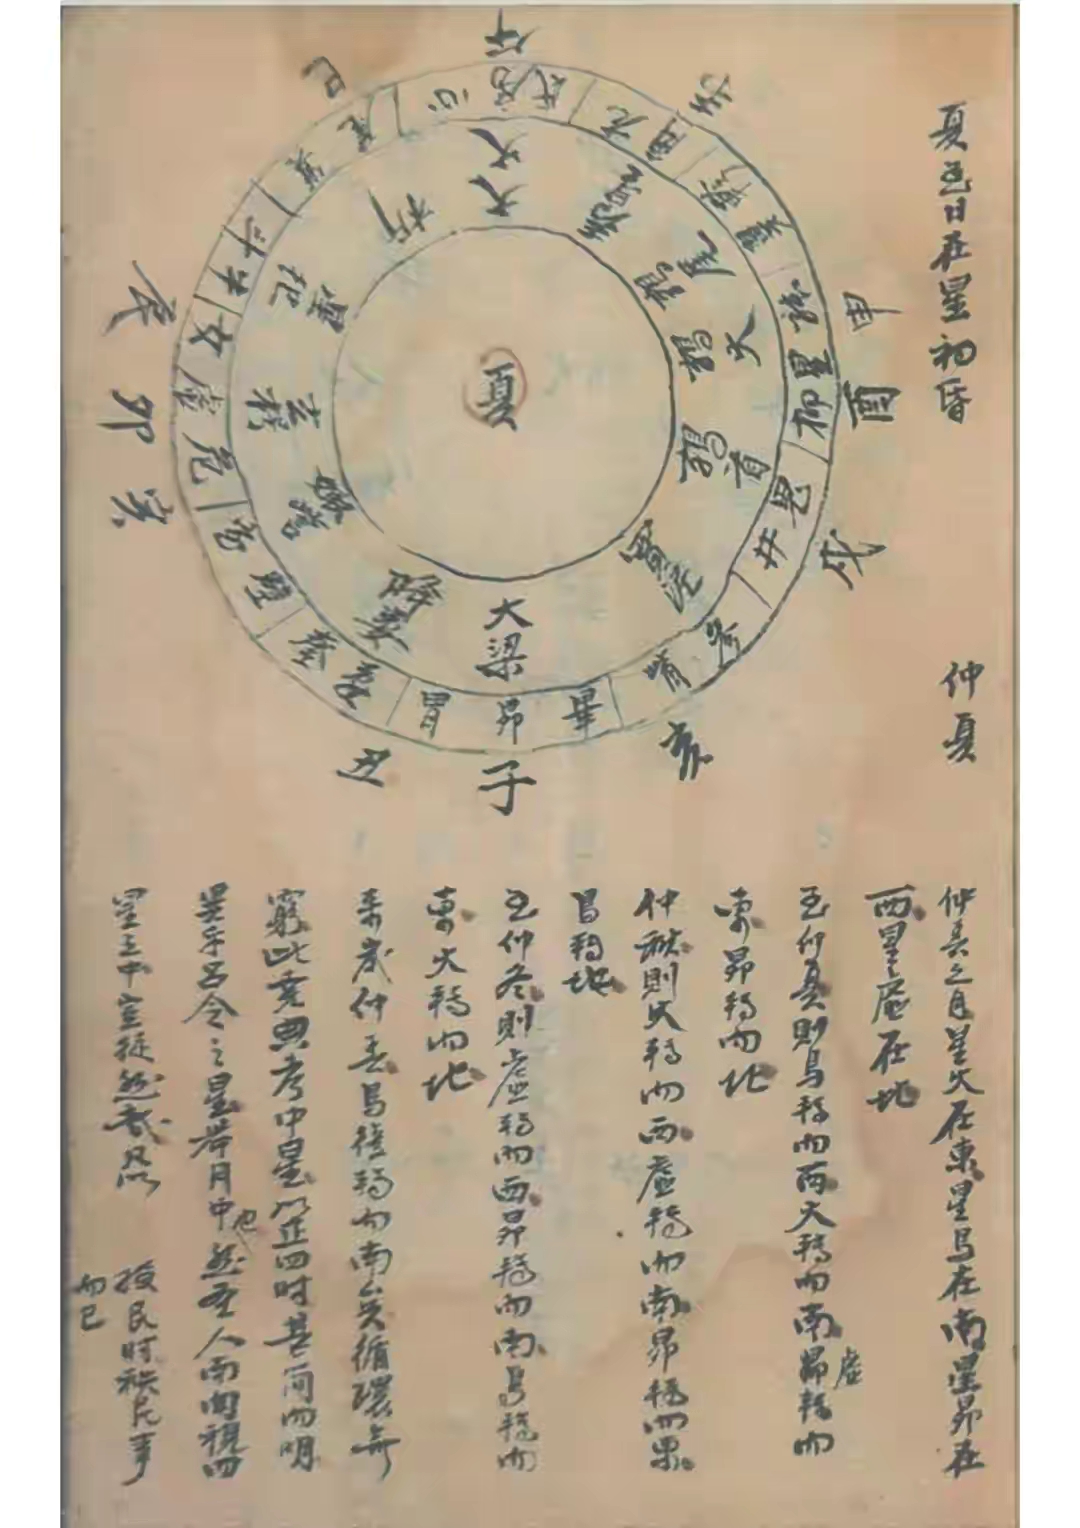 夏至日在星初昏
仲夏
夏
午
未
申
酉
戌
亥
子
丑
寅
卯
辰
巳
氐房心
角亢
翼軫
柳星張
井鬼
觜參
胃昴畢
奎婁
室壁
女虛危
斗牛
尾箕
大火
壽星
鶉尾
鶉火
鶉首
實沈
大梁
降婁
娵訾
玄枵
星紀
析
仲春之月星火在東星鳥在南星昴在
西星虛在北
至仲夏則鳥轉而西火轉而南昴轉而
虛
東昴轉而北
仲秋則火轉而西虛轉而南昴轉而東
鳥轉北
至仲冬則虛轉而西昴轉而南鳥轉而
東火轉而北
來歲仲春鳥復轉而南矣循環無
窮此堯典考中星以正四時甚簡而明
異乎呂令之星舉月中也然聖人南面視四
星之中豈徒然哉凡以 授民時秩民事
而已